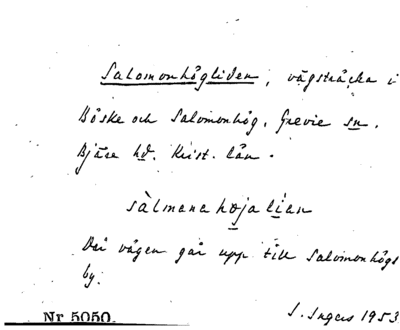 Salomonhögliden, vägsträcka i
Böske och Salomonhög, Grevie sn.
Bjäre hd. Krist. län.
sàlmana hœja lian
Där vägen går upp till Salomonhögs
by.
Nr 5050.
S. Ingers 1953